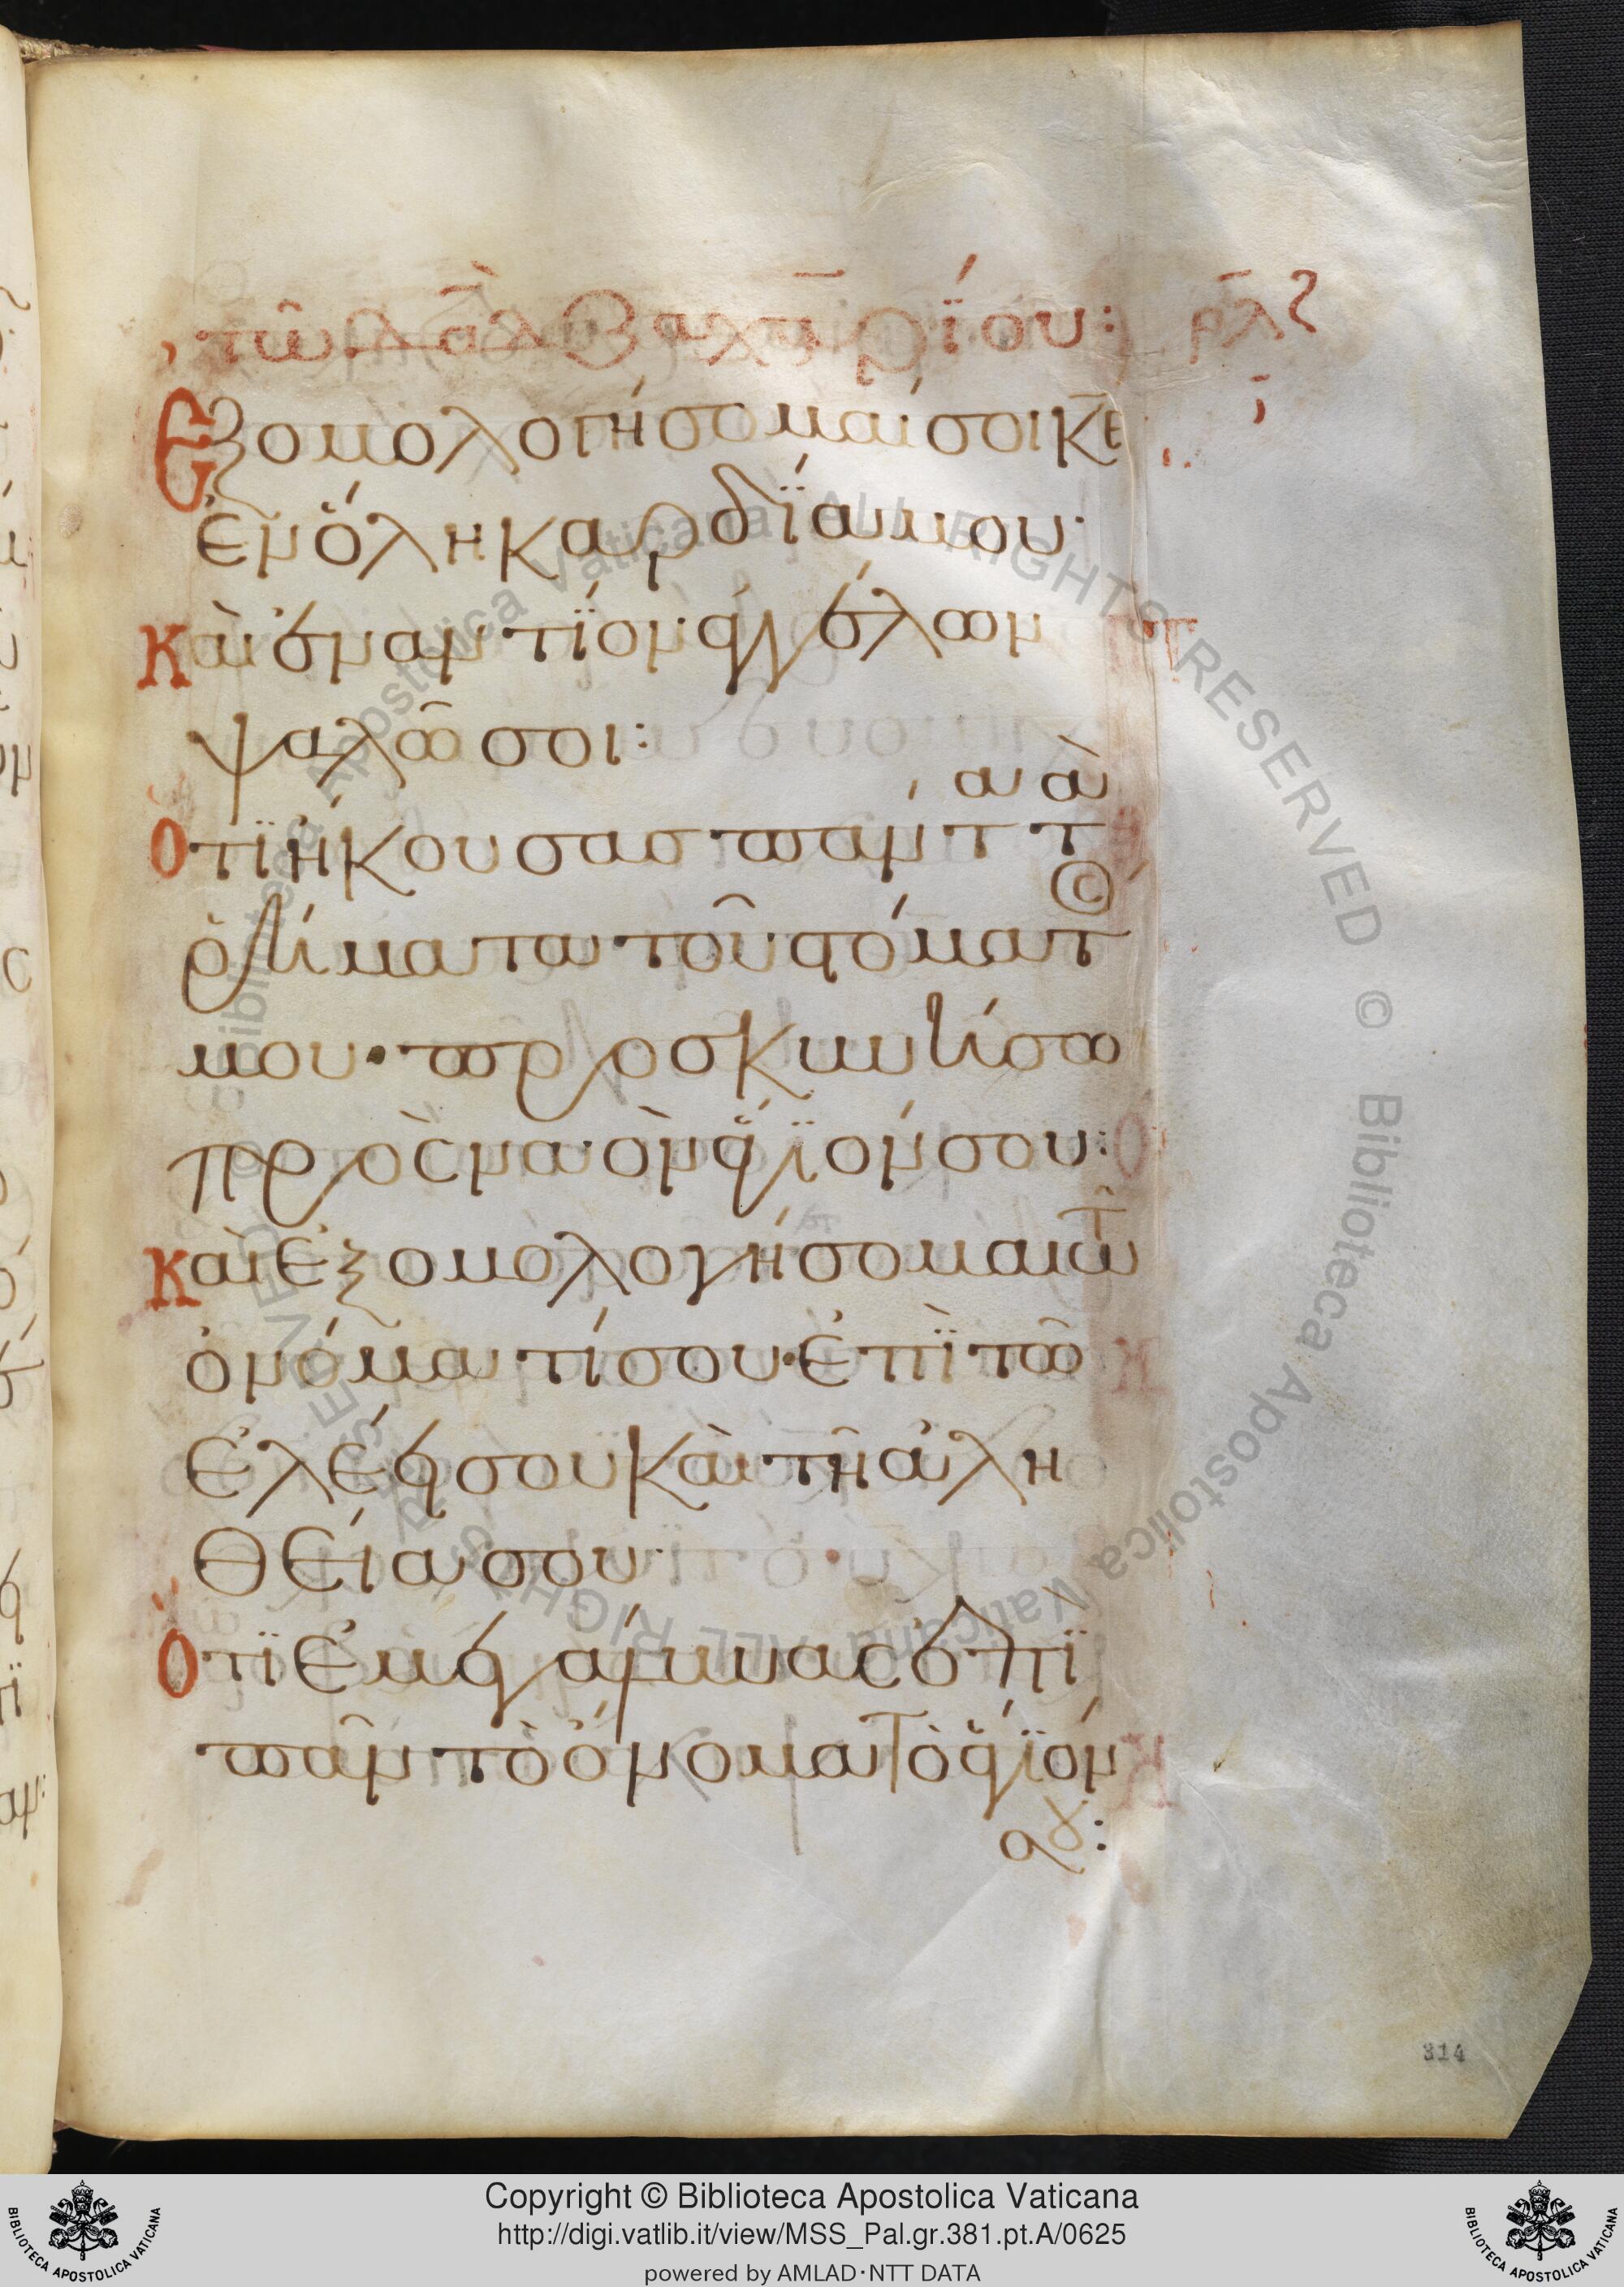 τῶ δᾱδ ζαχαρίου: ρλζ
Εξομολογήσομαί σοι κ̅ε̅
ἐν ὅλη καρδΐα μου·
Καὶ ἐναντΐον ἀγγέλων
ψαλῶ σοι:
Ὅτϊ ἤκουσας πάντα τὰ
ῥήματα τοῦ στόματός
μου· προσκυνήσω
πρὸς ναὸν ἅγϊόν σου:
Καὶ ἐξομολογήσομαι τῶ
ὀνόματί σου· ἐπῒ τῶ
ἐλέει σου καὶ τῆ ἀλη
θείᾳ σου·
Ὅτϊ ἐμεγάλυνας ἐπῒ
πᾶν τὸ ὄνομα τὸ ἅγϊόν
σου:
314
Copyright © Biblioteca Apostolica Vaticana
http://digi.vatlib.it/view/MSS_Pal.gr.381.pt.A/0625
powered by AMLAD·NTT DATA
BIBLIOTECA APOSTOLICA VATICANA
BIBLIOTECA APOSTOLICA VATICANA